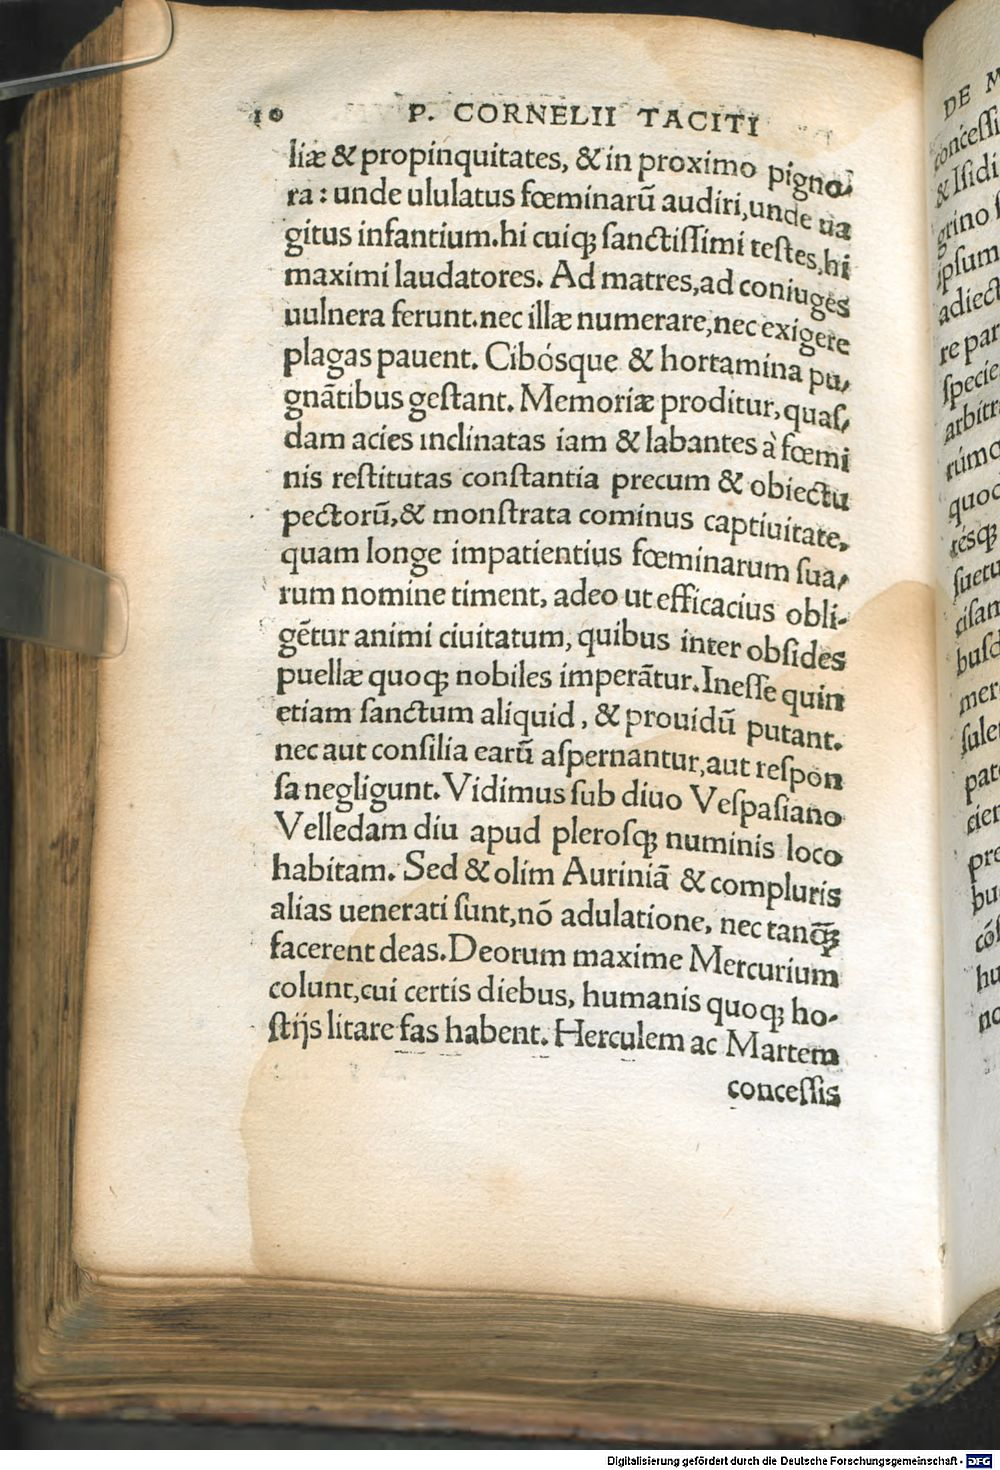 10 P. CORNELII TACITI
liæ & propinquitates, & in proximo pigno-
ra: unde ululatus fœminarũ audiri, unde ua
gitus infantium. hi cuiqꝫ ſanctiſſimi teſtes, hi
maximi laudatores. Ad matres, ad coniuges
uulnera ferunt. nec illæ numerare, nec exigere
plagas pauent. Cibósque & hortamina pu-
gnãtibus geſtant. Memoriæ proditur, quaſ-
dam acies inclinatas iam & labantes à fœmi
nis reſtitutas conſtantia precum & obiectu
pectorũ, & monſtrata cominus captiuitate,
quam longe impatientius fœminarum ſua-
rum nomine timent, adeo ut efficacius obli-
gẽtur animi ciuitatum, quibus inter obſides
puellæ quoqꝫ nobiles imperãtur. Ineſſe quin
etiam ſanctum aliquid, & prouidũ putant.
nec aut conſilia earũ aſpernantur, aut reſpon
ſa negligunt. Vidimus ſub diuo Veſpaſiano
Velledam diu apud pleroſqꝫ numinis loco
habitam. Sed & olim Auriniã & compluris
alias uenerati ſunt, nõ adulatione, nec tanꝗ̃
facerent deas. Deorum maxime Mercurium
colunt, cui certis diebus, humanis quoqꝫ ho-
ſtijs litare fas habent. Herculem ac Martem
conceſſis
DE M
conceſſi
& Iſidi
grino ſ
ipſum
adiect
re par
ſpecie
arbitr
rúmq
quoq
résqꝫ
ſuetu
ciſam
buſd
mer
ſule
pat
cier
pre
bu
cõſ
hu
no
Digitalisierung gefördert durch die Deutsche Forschungsgemeinschaft - DFG